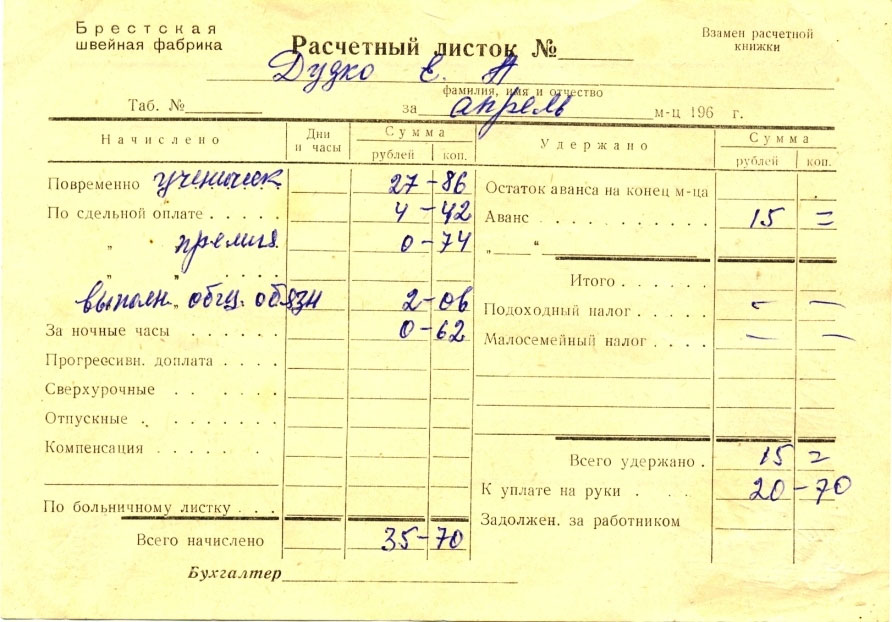 Брестская
швейная фабрика
Взамен расчетной
книжки
Расчетный листок №
Дудко Е.
фамилия, имя и отчество
Таб. № за апрель м-ц 196 г.
Начислено Дни и часы Сумма рублей коп.
Удержано Сумма рублей коп.
Повременно ученическ 27-86
По сдельной оплате . . . . . 4-42
„ премия 0-74
„ „ . . . .
выполн. „ общ. обязн 2-06
За ночные часы . . . . . . 0-62
Прогрессивн. доплата . . . .
Сверхурочные . . . .
Отпускные .
Компенсация . . . . . .
По больничному листку . . .
Всего начислено 35-70
Остаток аванса на конец м-ца
Аванс . . . . . . . . 15 =
„ “
Итого . . . .
Подоходный налог . . . . — —
Малосемейный налог . . . . — —
Всего удержано . 15 =
К уплате на руки . . . . 20-70
Задолжен. за работником
Бухгалтер